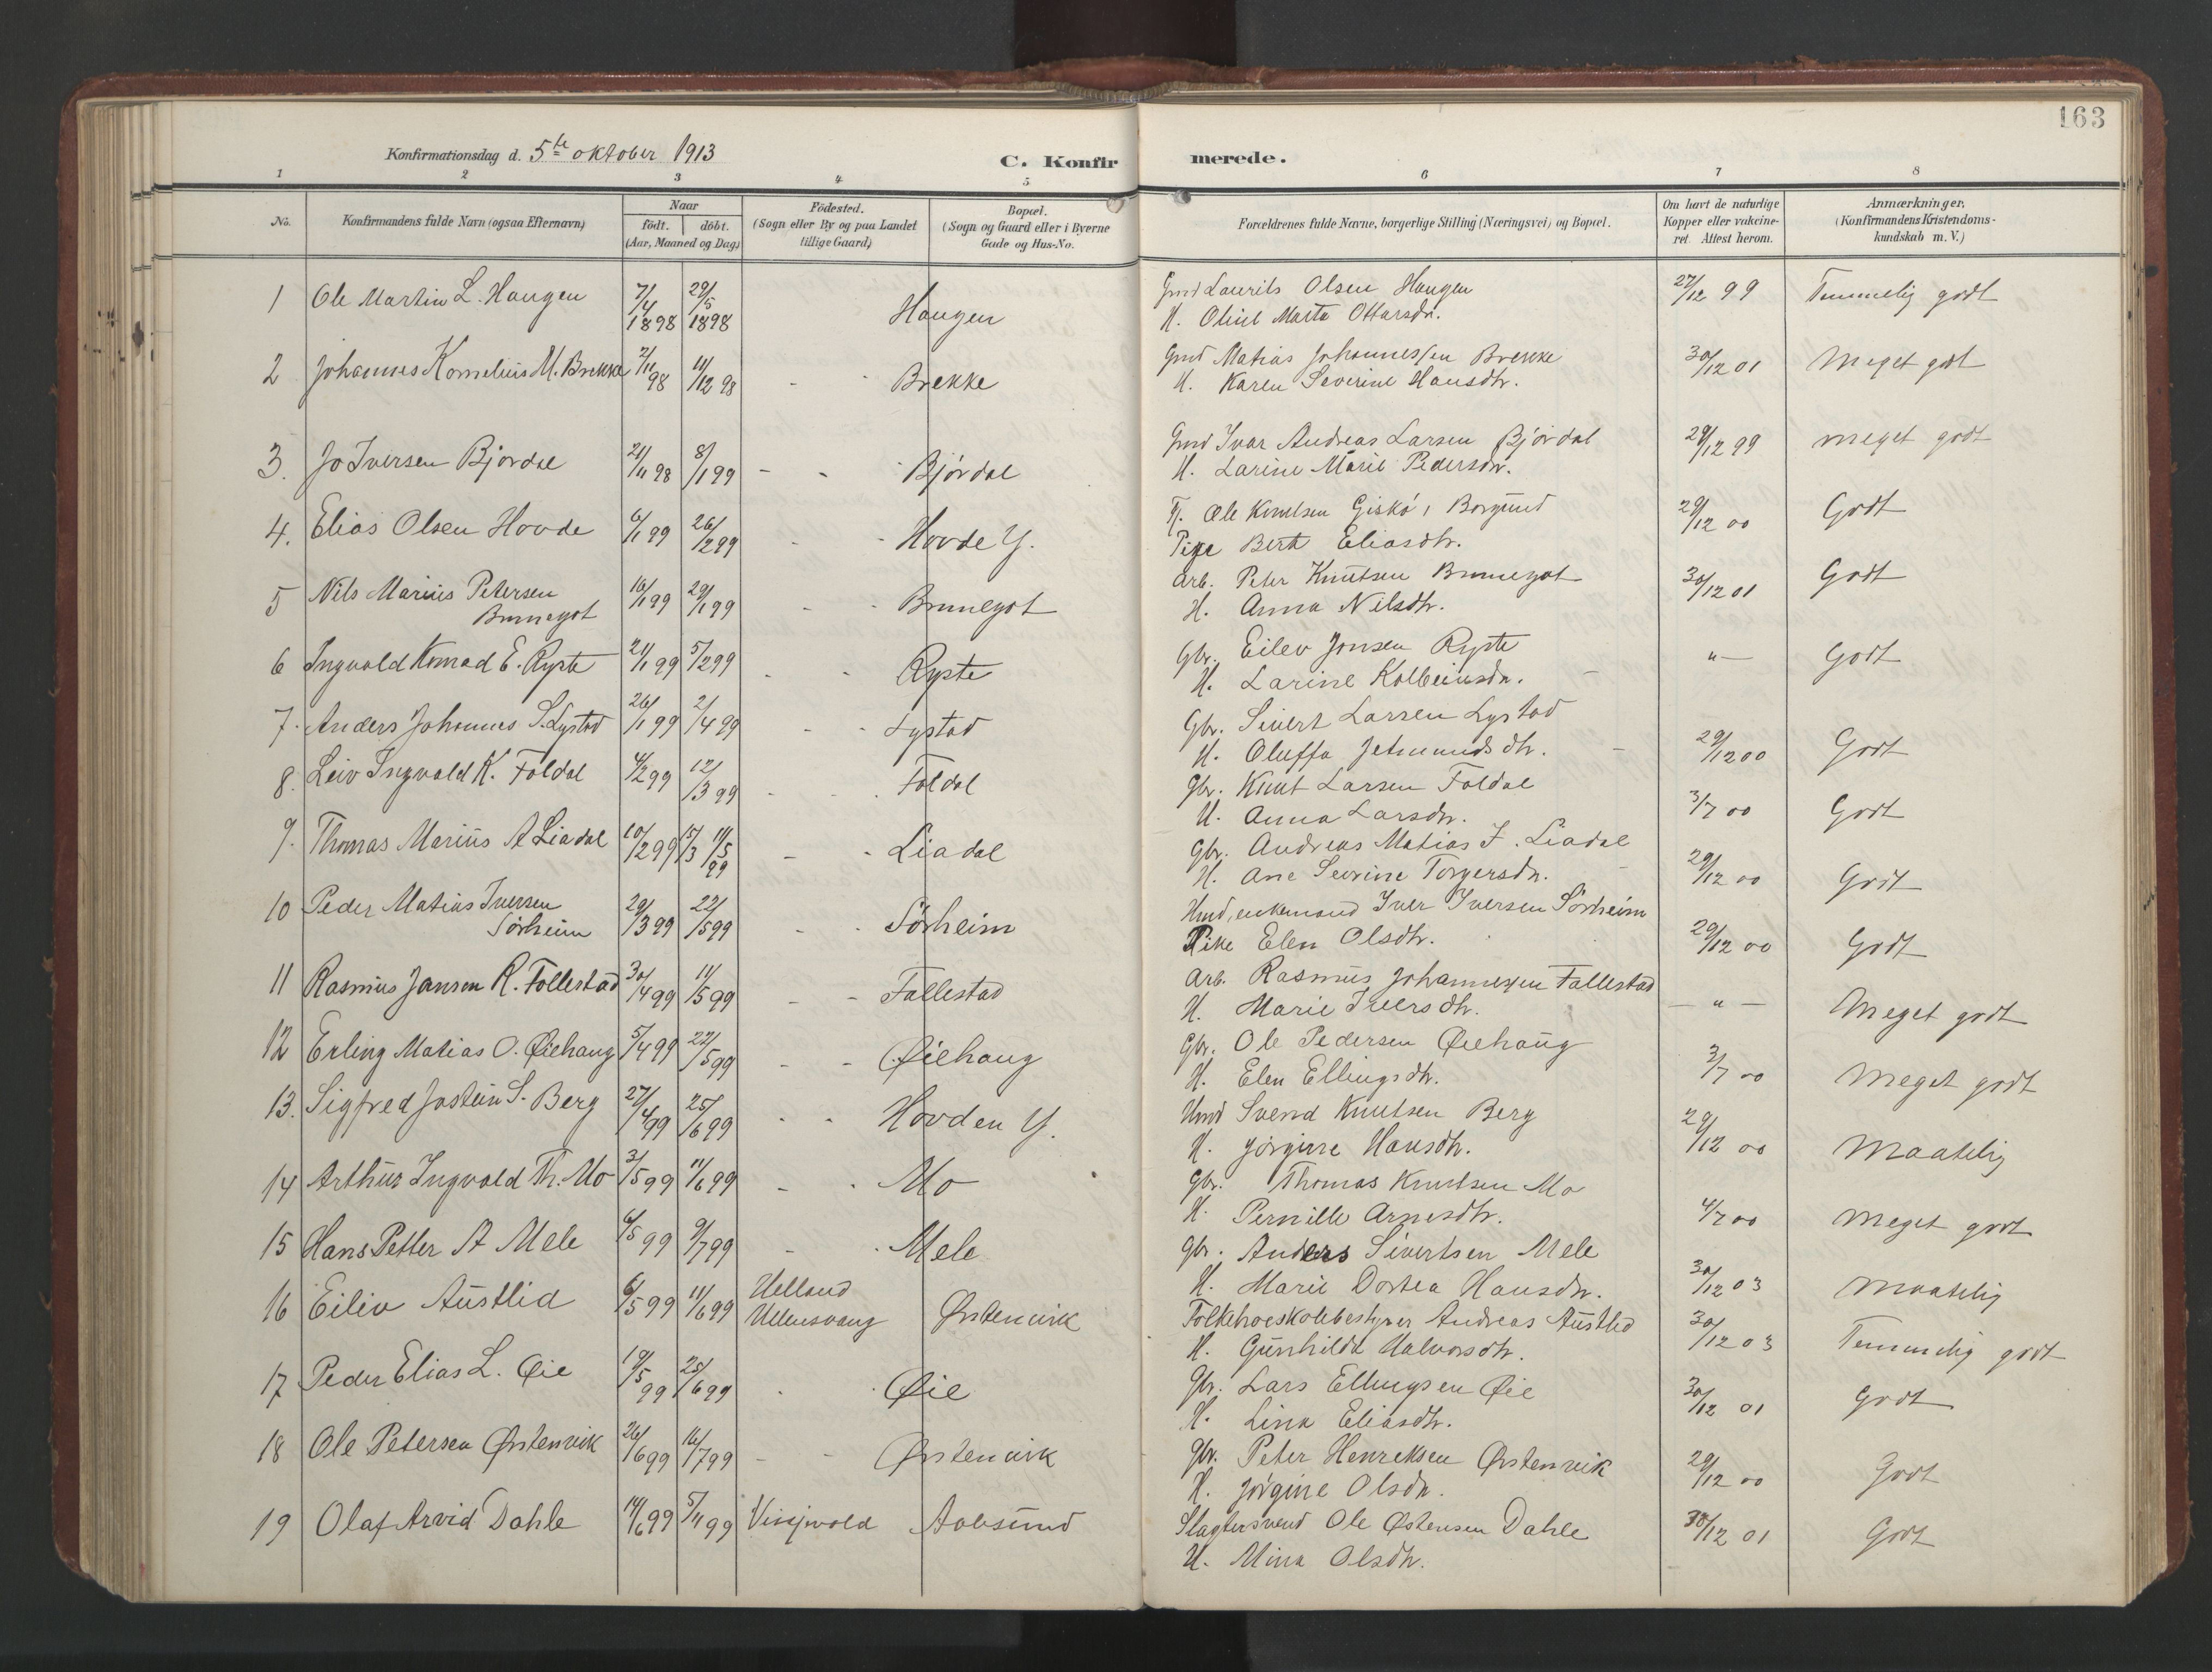 163
Konfirmationsdag d. 5te oktober 1913
C. Konfirmerede.
1 2 3 4 5 6 7 8
No.
Konfirmandens fulde Navn (ogsaa Efternavn)
Naar
födt. döbt.
(Aar, Maaned og Dag)
Födested.
(Sogn eller By og paa Landet
tillige Gaard)
Bopæl.
(Sogn og Gaard eller i Byerne
Gade og Hus-No.
Forældrenes fulde Navne, borgerlige Stilling (Næringsvei) og Bopæl.
Om havt de naturlige
Kopper eller vakcine-
ret. Attest herom.
Anmærkninger.
(Konfirmandens Kristendoms-
kundskab m. V.)
1 Ole Martin L. Haugen 7/4 1898 29/5 1898 Haugen Gmd Laurits Olsen Haugen 27/12 99 Temmelig godt
H. Oline Marta Ottarsdr.
2 Johannes Kornelius M. Brekke 2/11 98 11/12 98 - - Brekke Gmd Matias Johannessen Brekke 30/12 01 Meget godt
H. Karen Severine Hansdtr.
3. Jo Iversen Bjørdal 21/11 98 8/1 99 - - - Bjørdal Gmd Ivar Andreas Larsen Bjørdal 29/12 99 meget godt
H. Larine Marie Pedersdr.
4. Elias Olsen Hovde 6/1 99 26/2 99 - - Hovde Y. Tj. Ole Knutsen Giskø, Borgund 29/12 00 Godt
Pige Berte Eliasdtr.
5 Nils Marius Petersen
Brunegot 16/1 99 29/1 99 - - Brunegot Arb. Peter Knutsen Brunegot 30/12 01 Godt
H. Anna Nilsdtr.
6 Ingvald Konrad E. Ryste 21/1 99 5/2 99 - - Ryste Gbr. Eilev Jonsen Ryste " — Godt
H. Larine Kolbeinsdr. -
7. Anders Johannes S. Lystad 26/1 99 2/4 99 - - Lystad Gbr. Sivert Larsen Lystad 29/12 00 Godt
H. Oluffa Jetmundsdtr. -
8. Leiv Ingvald K. Foldal 4/2 99 12/3 99 - - Foldal Gbr. Knut Larsen Foldal 3/7 00 Godt
H. Anna Larsdr.
9. Thomas Marius A Liadal 10/2 99 15/3 11/5 99 - - Liadal Gbr. Andreas Matias J. Liadal 29/12 00 Godt
H. Ane Sevrine Torgersdr. -
10 Peder Matias Iversen
Sørheim 29/3 99 22/5 99 - - Sørheim Hmd, enkemand Iver Iversen Sørheim 29/12 00 Godt
Pike Elen Olsdtr.
11 Rasmus Jansen R. Follestad 30/4 99 11/5 99 - - Follestad Arb. Rasmus Johannessen Follestad — " — Meget godt
H. Marie Iversdtr.
12 Erling Matias O. Øiehaug 5/4 99 22/5 99 - - Øiehaug Gbr. Ole Pedersen Øiehaug 3/7 00 Meget godt
H. Elen Ellingsdtr.
13. Sigfred Jostein S. Berg 27/4 99 25/6 99 - - Hovden Y. Hmd Svend Knutsen Berg 29/12 00 Maatelig
H. Jørgine Hansdtr.
14 Arthur Ingvald Th. Mo 3/5 99 11/6 99 - - Mo Gbr. Thomas Knutsen Mo 4/7 00 Meget godt
H. Pernille Arnesdtr.
15 Hans Petter A Mele 6/5 99 9/7 99 - - Mele Gbr. Anders Sivertsen Mele 30/12 03 Maatelig
H. Marie Dortea Hansdr.
16 Eiliv Austlid 6/5 99 11/6 99 Helland
Ullensvang Ørstenvik Folkehøiskolebestyrer Andreas Austlid 30/12 03 Temmelig godt
H. Gunhilda Halvorsdtr.
17 Peder Elias L. Øie 19/5 99 25/6 99 - - Øie Gbr. Lars Ellingsen Øie 30/12 01 Godt
H. Lina Eliasdtr.
18 Ole Petersen Ørstenvik 26/6 99 16/7 99 - - Ørstenvik Gbr. Peter Henriksen Ørstenvik 29/12 00 Godt
H. Jørgine Olsdr.
19 Olaf Arvid Dahle 14/6 99 5/11 99 Aalesund Slagtersvend Ole Østensen Dahle 30/12 01 Godt
H. Mina Olsdtr.